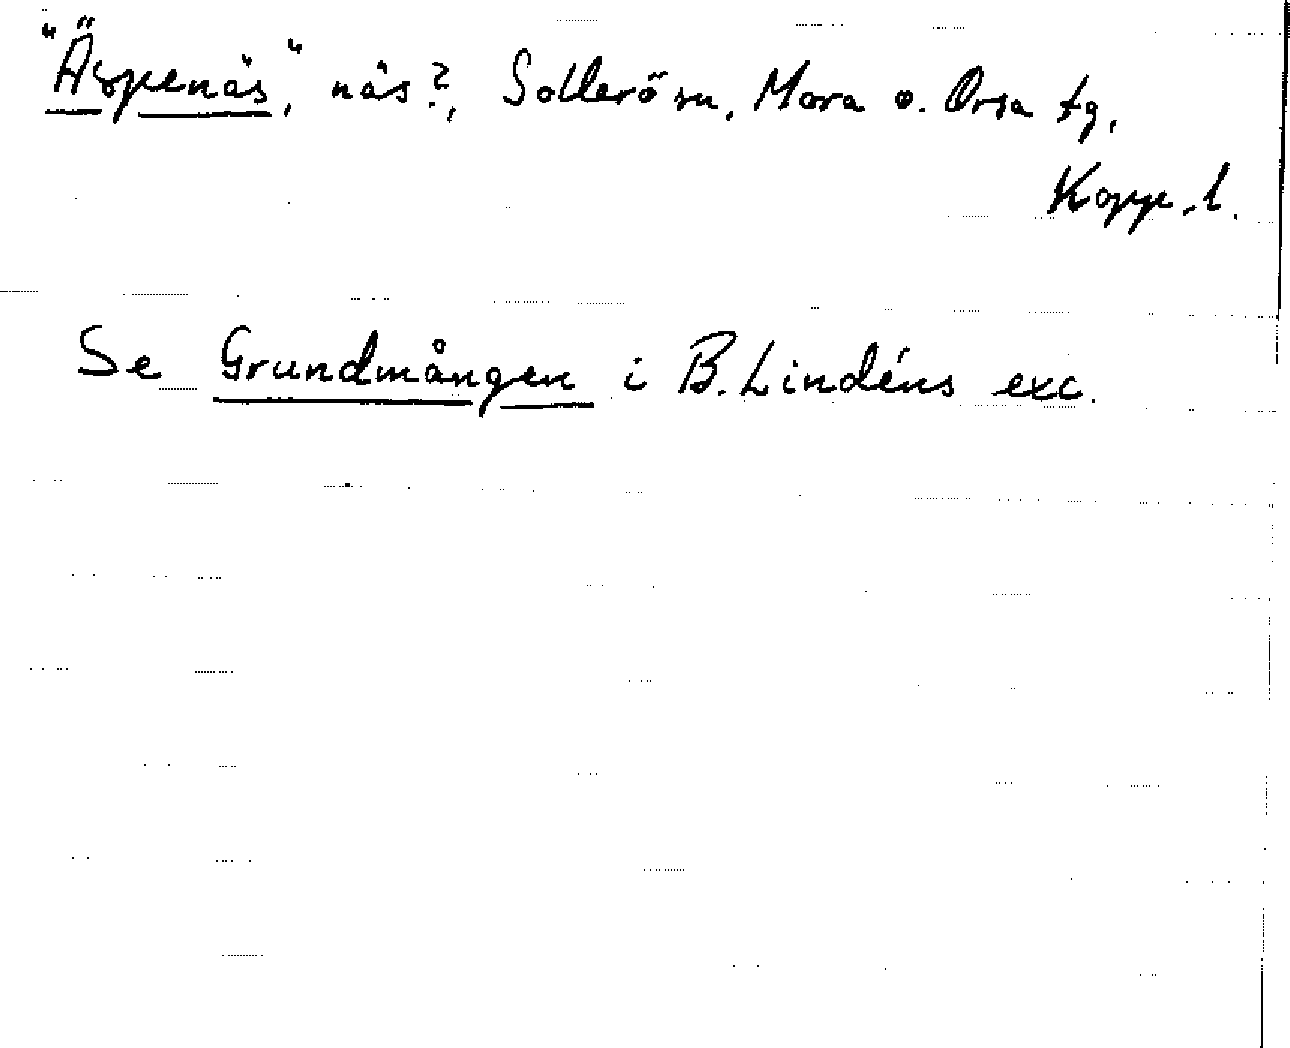 "Äspenäs", näs?, Sollerön, Mora o. Orsa tg,
Kopp. l.
Se Grundmången i B. Lindéns exc.